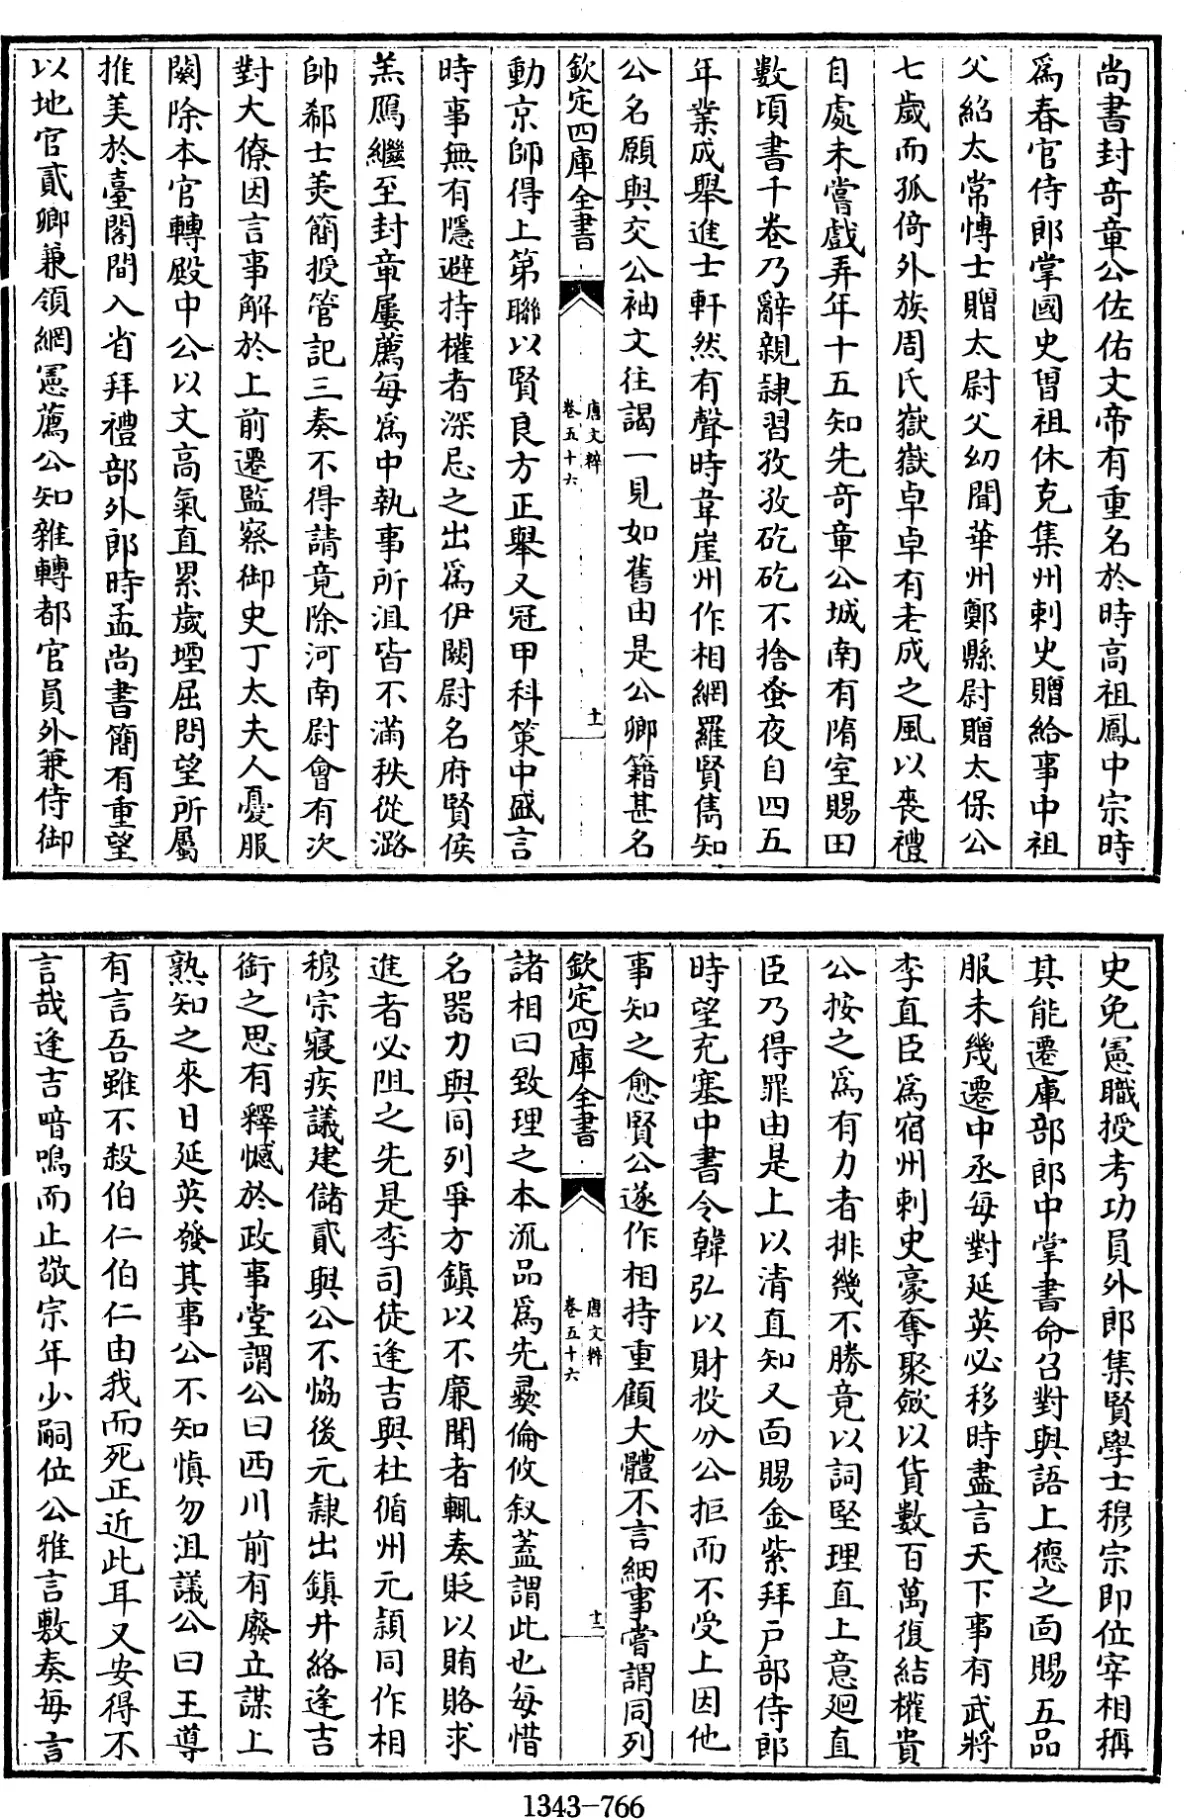 尚書封奇章公佐佑文帝有重名於時高祖鳳中宗時
爲春官侍郎掌國史曾祖休克集州刺史贈給事中祖
父紹太常博士贈太尉父幼聞華州鄭縣尉贈太保公
七歲而孤倚外族周氏嶽嶽卓卓有老成之風以喪禮
自處未嘗戲弄年十五知先奇章公城南有隋室賜田
數頃書千卷乃辭親隷習孜孜矻矻不捨蚤夜自四五
年業成舉進士軒然有聲時韋崖州作相網羅賢雋知
公名願與交公袖文往謁一見如舊由是公卿籍甚名
欽定四庫全書
唐文粹
卷五十六
十一
動京師得上第聯以賢良方正舉又冠甲科策中盛言
時事無有隱避持權者深忌之出爲伊闕尉名府賢侯
羔鴈繼至封章屢薦每爲中執事所沮皆不滿秩從潞
帥郗士美簡授管記三奏不得請竟除河南尉會有次
對大僚因言事解於上前遷監察御史丁太夫人憂服
闋除本官轉殿中公以文高氣直累歲堙屈問望所屬
推美於臺閣間入省拜禮部外郎時孟尚書簡有重望
以地官貳卿兼領網憲薦公知雜轉都官員外兼侍御
史免憲職授考功員外郎集賢學士穆宗即位宰相稱
其能遷庫部郎中掌書命召對與語上德之面賜五品
服未幾遷中丞每對延英必移時盡言天下事有武將
李直臣爲宿州刺史豪奪聚斂以貨數百萬復結權貴
公按之爲有力者排幾不勝竟以詞堅理直上意廻直
臣乃得罪由是上以清直知又面賜金紫拜戸部侍郎
時望充塞中書令韓弘以財投分公拒而不受上因他
事知之愈賢公遂作相持重顧大體不言細事嘗謂同列
欽定四庫全書
唐文粹
卷五十六
十二
諸相曰致理之本流品爲先彞倫攸叙蓋謂此也每惜
名器力與同列爭方鎮以不廉聞者輒奏貶以賄賂求
進者必阻之先是李司徒逢吉與杜循州元穎同作相
穆宗寢疾議建儲貳與公不恊後元穎出鎮井絡逢吉
銜之思有釋憾於政事堂謂公曰西川前有廢立謀上
熟知之來日延英發其事公不知慎勿沮議公曰王導
有言吾雖不殺伯仁伯仁由我而死正近此耳又安得不
言哉逢吉喑嗚而止敬宗年少嗣位公雅言敷奏每言
1343-766